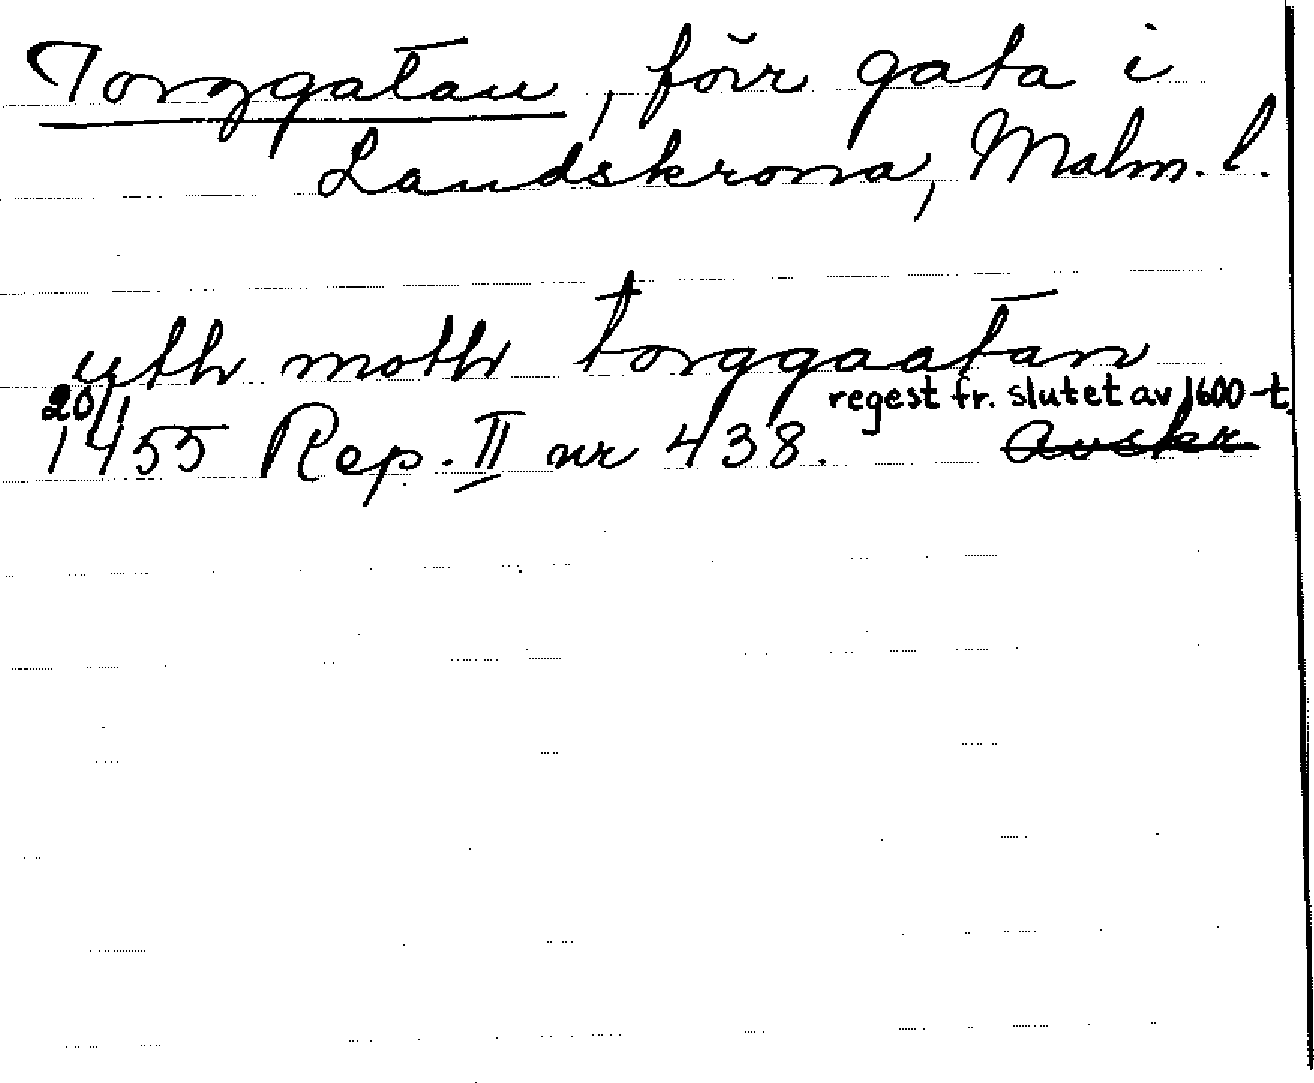 Torggatan, förr gata i
Landskrona, Malm. l.
yth moth torggaatan
20/1 regest fr. slutet av 1600-t.
1455 Rep. II nr 438. Avskr